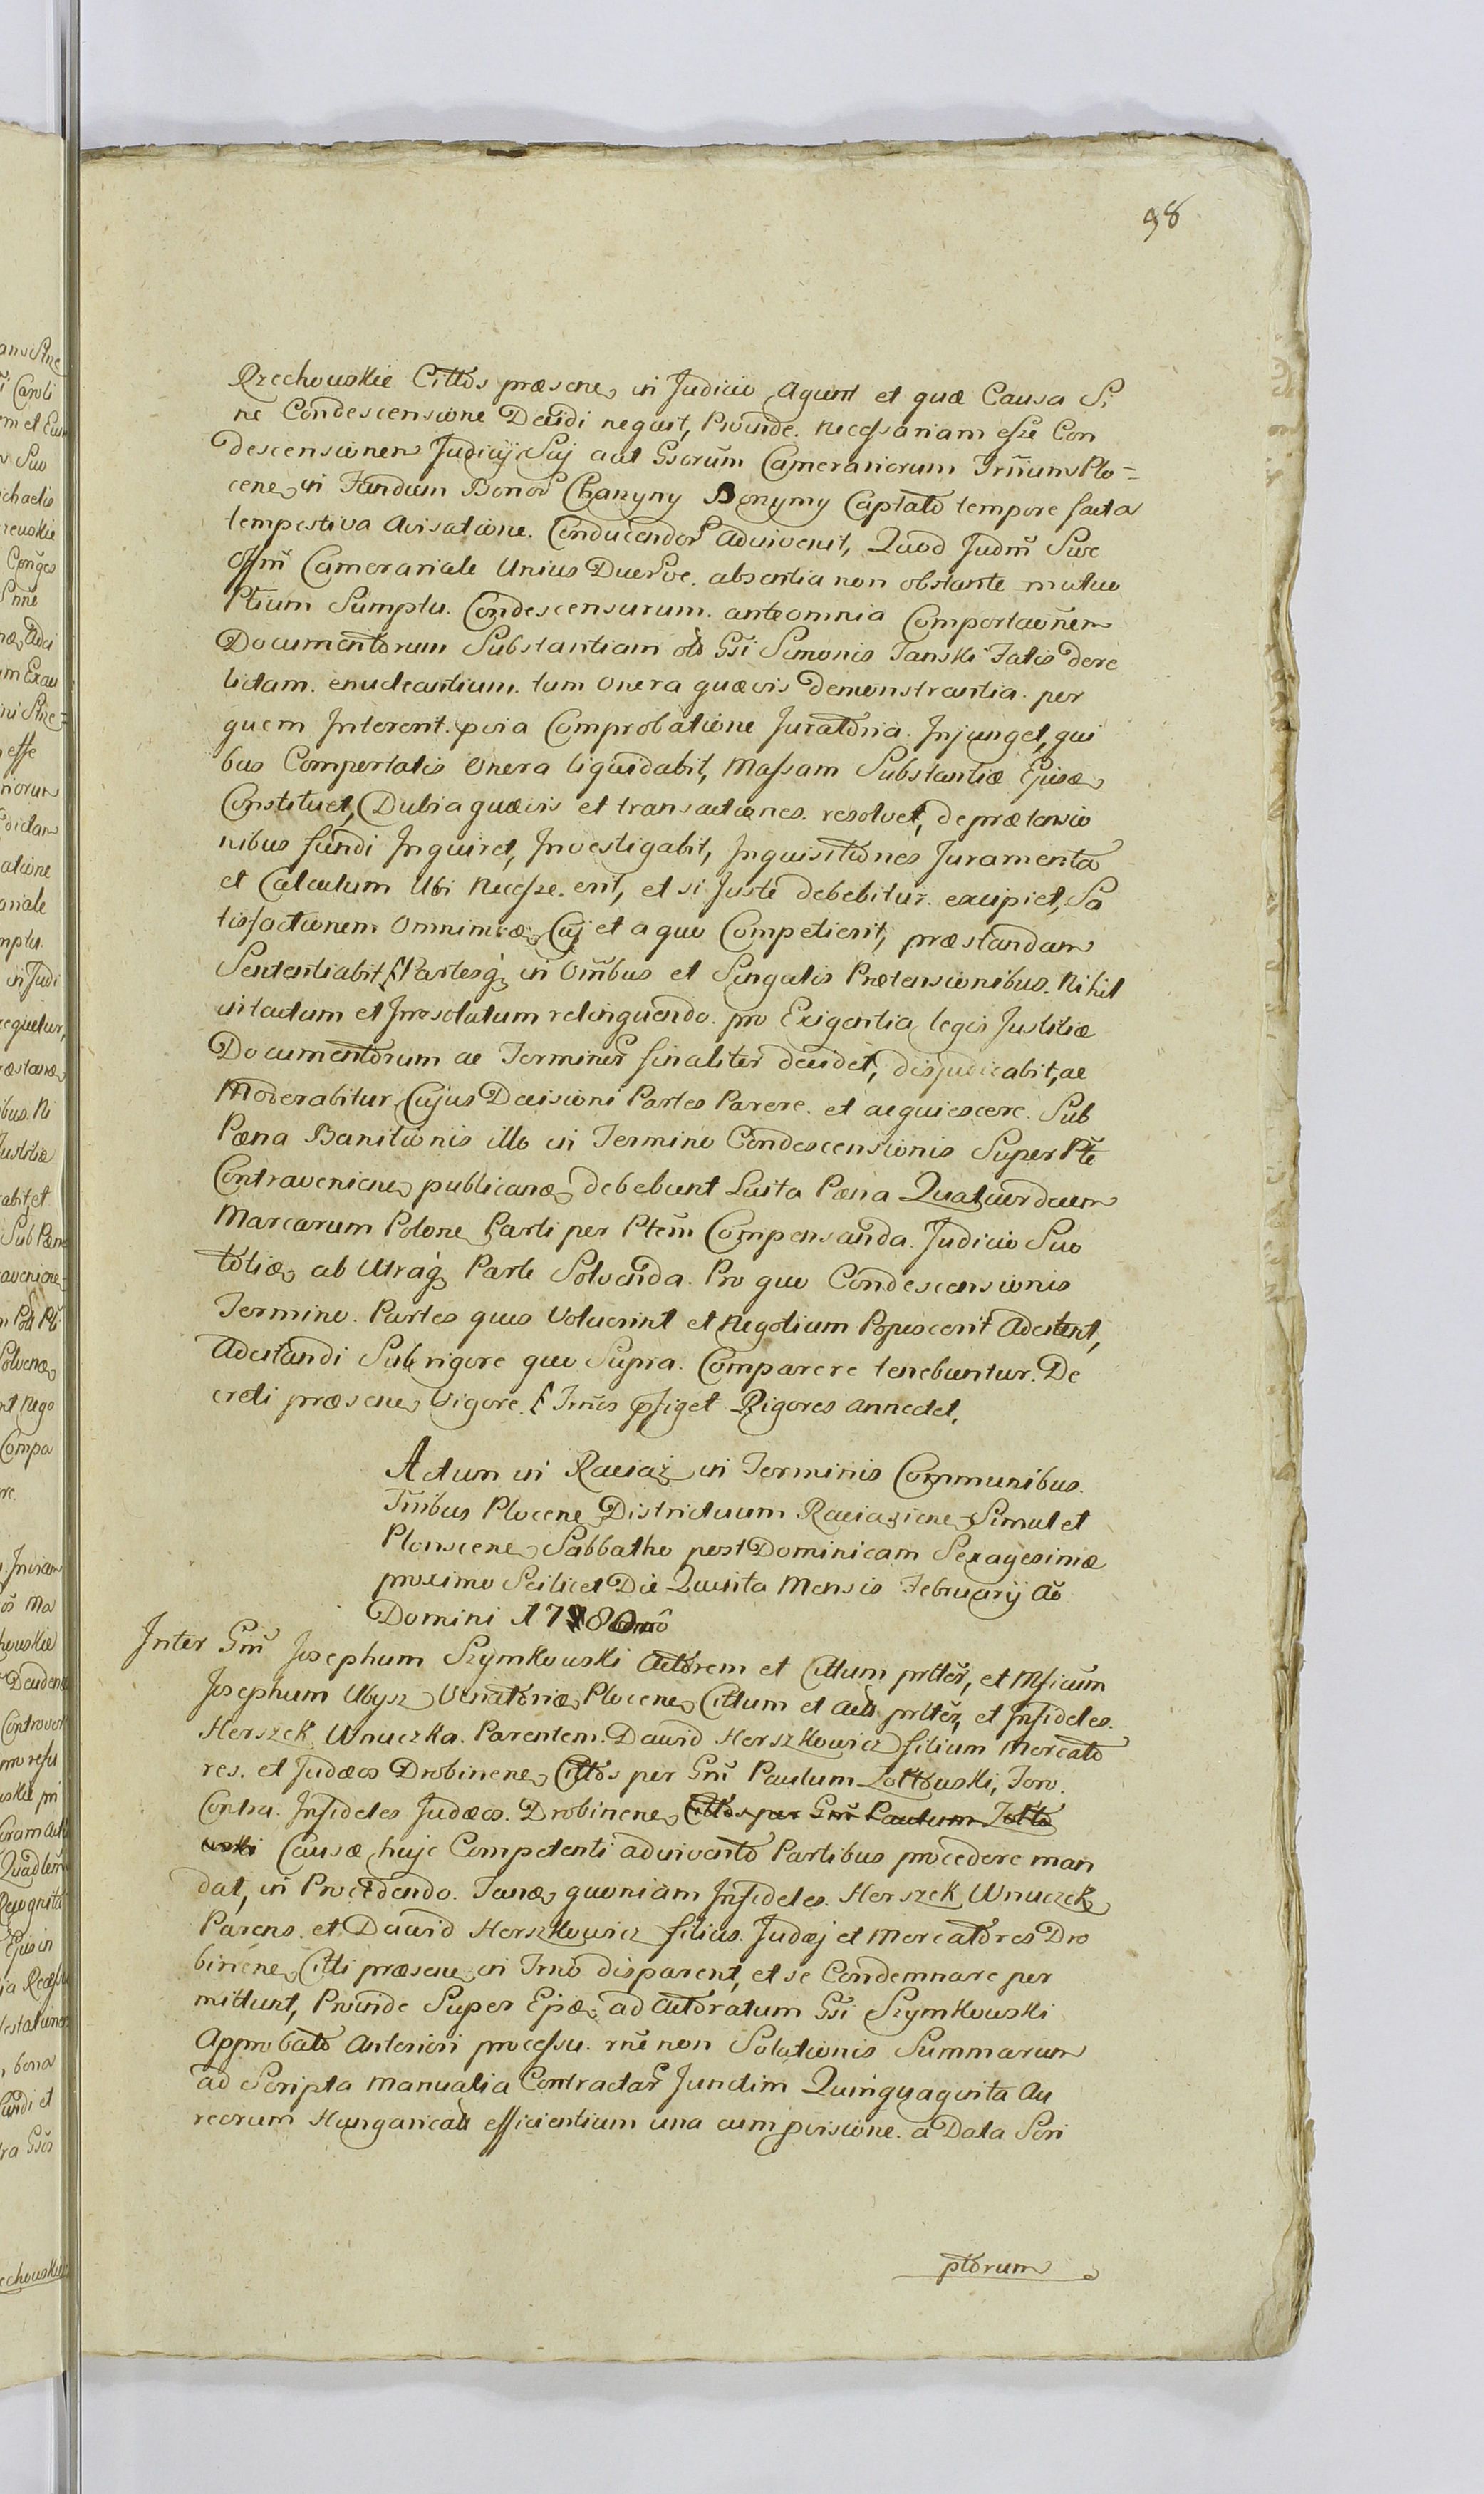 98
Rzechowskie Cittos præsene in Judicio Agunt et quæ Causa Si
ne Condescensione Decidi nequit, Proinde necessariam esse Con
descensionem Judicij Sui aut Gsorum Camerariorum Trrium Plo=
cene in Fundum Bonor Charzyny Borzymy Captato tempore facta
tempestiva Avisatione Conducendor adinvenit, Quod Judm̃ Sive
Offm̃ Camerariale Unius Duerve absentia non obstante mutuo
Ptium Sumptu Condescensurum ante omnia Comportaõnem
Documentorum Substantiam olỡ Gsi Simonis Janski Fatis dere
lictam enucleantium tum onera quævis demonstrantia per
quem Intererit pvia Comprobatione Juratoria Injunget, qui
bus Comportatis onera liquidabit, Massam Substantiæ Ejusd
Constituet, Dubia quævis et transactiones resolvet, de prætensio
nibus fundi Inquiret, Investigabit, Inquisitiones Juramenta
et Calculum Ubi necesse erit, et si Juste debebitur excipiet, Sa
tisfactionem Omnimodæ Cuj et a quo Competierit, præstandam
Sententiabit Partesq in Omĩbus et Singulis Prætensionibus Nihil
intactum et Irresolutum relinquendo pro Exigentia legis Justitiæ
Documentorum ac Terminor finaliter decidet, disjudicabit, ac
Moderabitur Cujus Decisioni Partes Parere et acquiescere Sub
Pæna Banitionis illo in Termino Condescensionis Super Pte
Contraveniene publicanæ debebunt Luita Pæna Quatuordecim
Marcarum Polone Parti per Ptem̃ Compensanda Judicio Suo
totiæ ab Utraq Parte Solvenda. Pro quo Condescensionis
Termino Partes quos Voluerint et Negotium Poposcerit Adcitent,
Adcitandi Sub rigore quo Supra Comparere tenebuntur. De
creti præsene Vigore Trm̃es pfiget Rigores annectet.
Actum in Raciaz in Terminis Communibus
Trr̃ibus Plocene Districtuum Raciazene Simul et
Plonscene Sabbatho post Dominicam Sexagesimæ
proximo Scilicet Die Quinta Mensis Februarij Aõ
Domini 1780mo
Inter Gm̃ Josephum Szymkowski Actorem et Cittum prlter, et Mficum
Josephum Ubysz Venatoriæ Plocene Cittum et Acto prlter, et Infideles
Herszek Wnuczka Parentem Dawid Herszkowicz filium Mercato
res et Judæos Drobinene Cittos per Gm̃ Paulum Zoltowski, Foro
Contra Infideles Judæos Drobinene Cittos per Gm̃ Paulum Zolto
wski Causæ huje Competenti adinvento Partibus procedere man
dat, in Procedendo Tanæ quoniam Infideles Herszek Wnuczek
Parens et Dawid Herszkowicz filius Judæj et Mercatores Dro
binene Citti præsene in Trno disparent, et se Condemnare per
mittunt, Proinde Super Ejsd ad Actoratum Gsi Szymkowski
Approbato Anteriori processu rñe non Solutionis Summarum
ad Scripta manualia Contractar Junctim Quinquaginta Au
reorum Hungaricalị efficientium una cum pvisione a Data Scri
ptorum